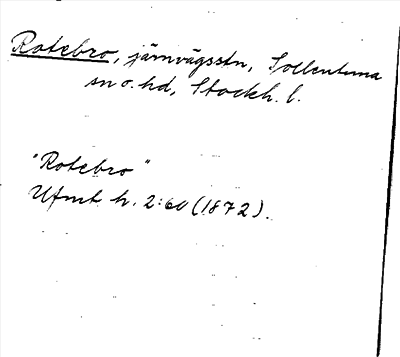 Rotebro, järnvägsstn, Sollentuna
sn o. hd, Stockh. l.
"Rotebro"
Utmt h. 2:60 (1872).